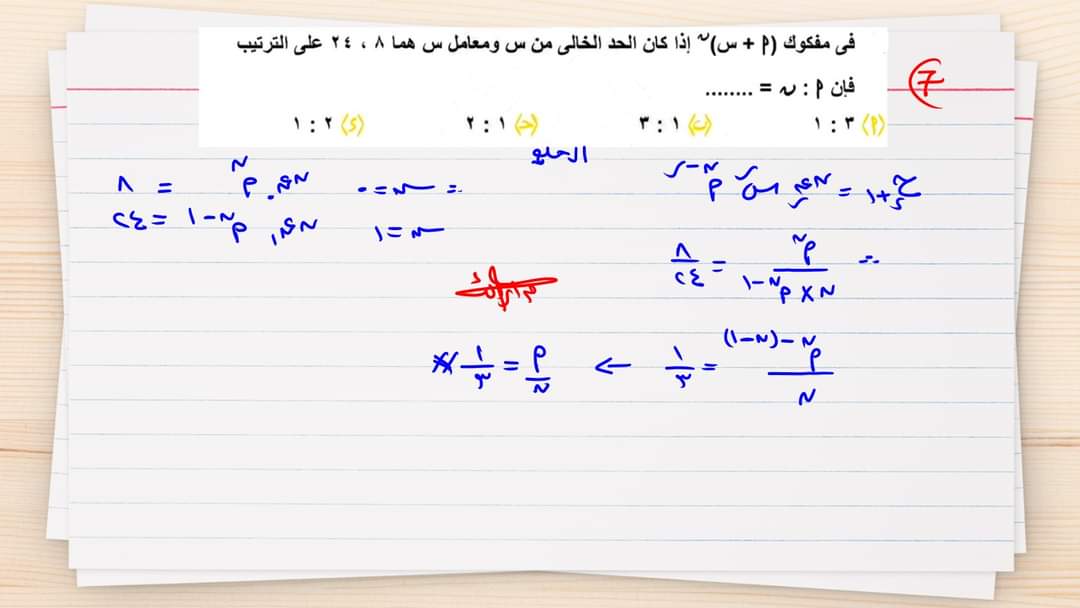 فى مفكوك (أ + س)ن إذا كان الحد الخالى من س ومعامل س هما ٨ ، ٢٤ على الترتيب
٧
فإن أ : ن = ........
(أ) ٣ : ١ (ب) ١ : ٣ (حـ) ١ : ٢ (د) ٢ : ١
الحل
ح ر+١ = ن ق ر س ر أ ن-ر
∴ ر = ٠ ن ق ٠ أ ن = ٨
ر = ١ ن ق ١ أ ن-١ = ٢٤
∴ أ ن / ن × أ ن-١ = ٨ / ٢٤
أ ن-(ن-١) / ن = ١ / ٣ ← أ / ن = ١ / ٣